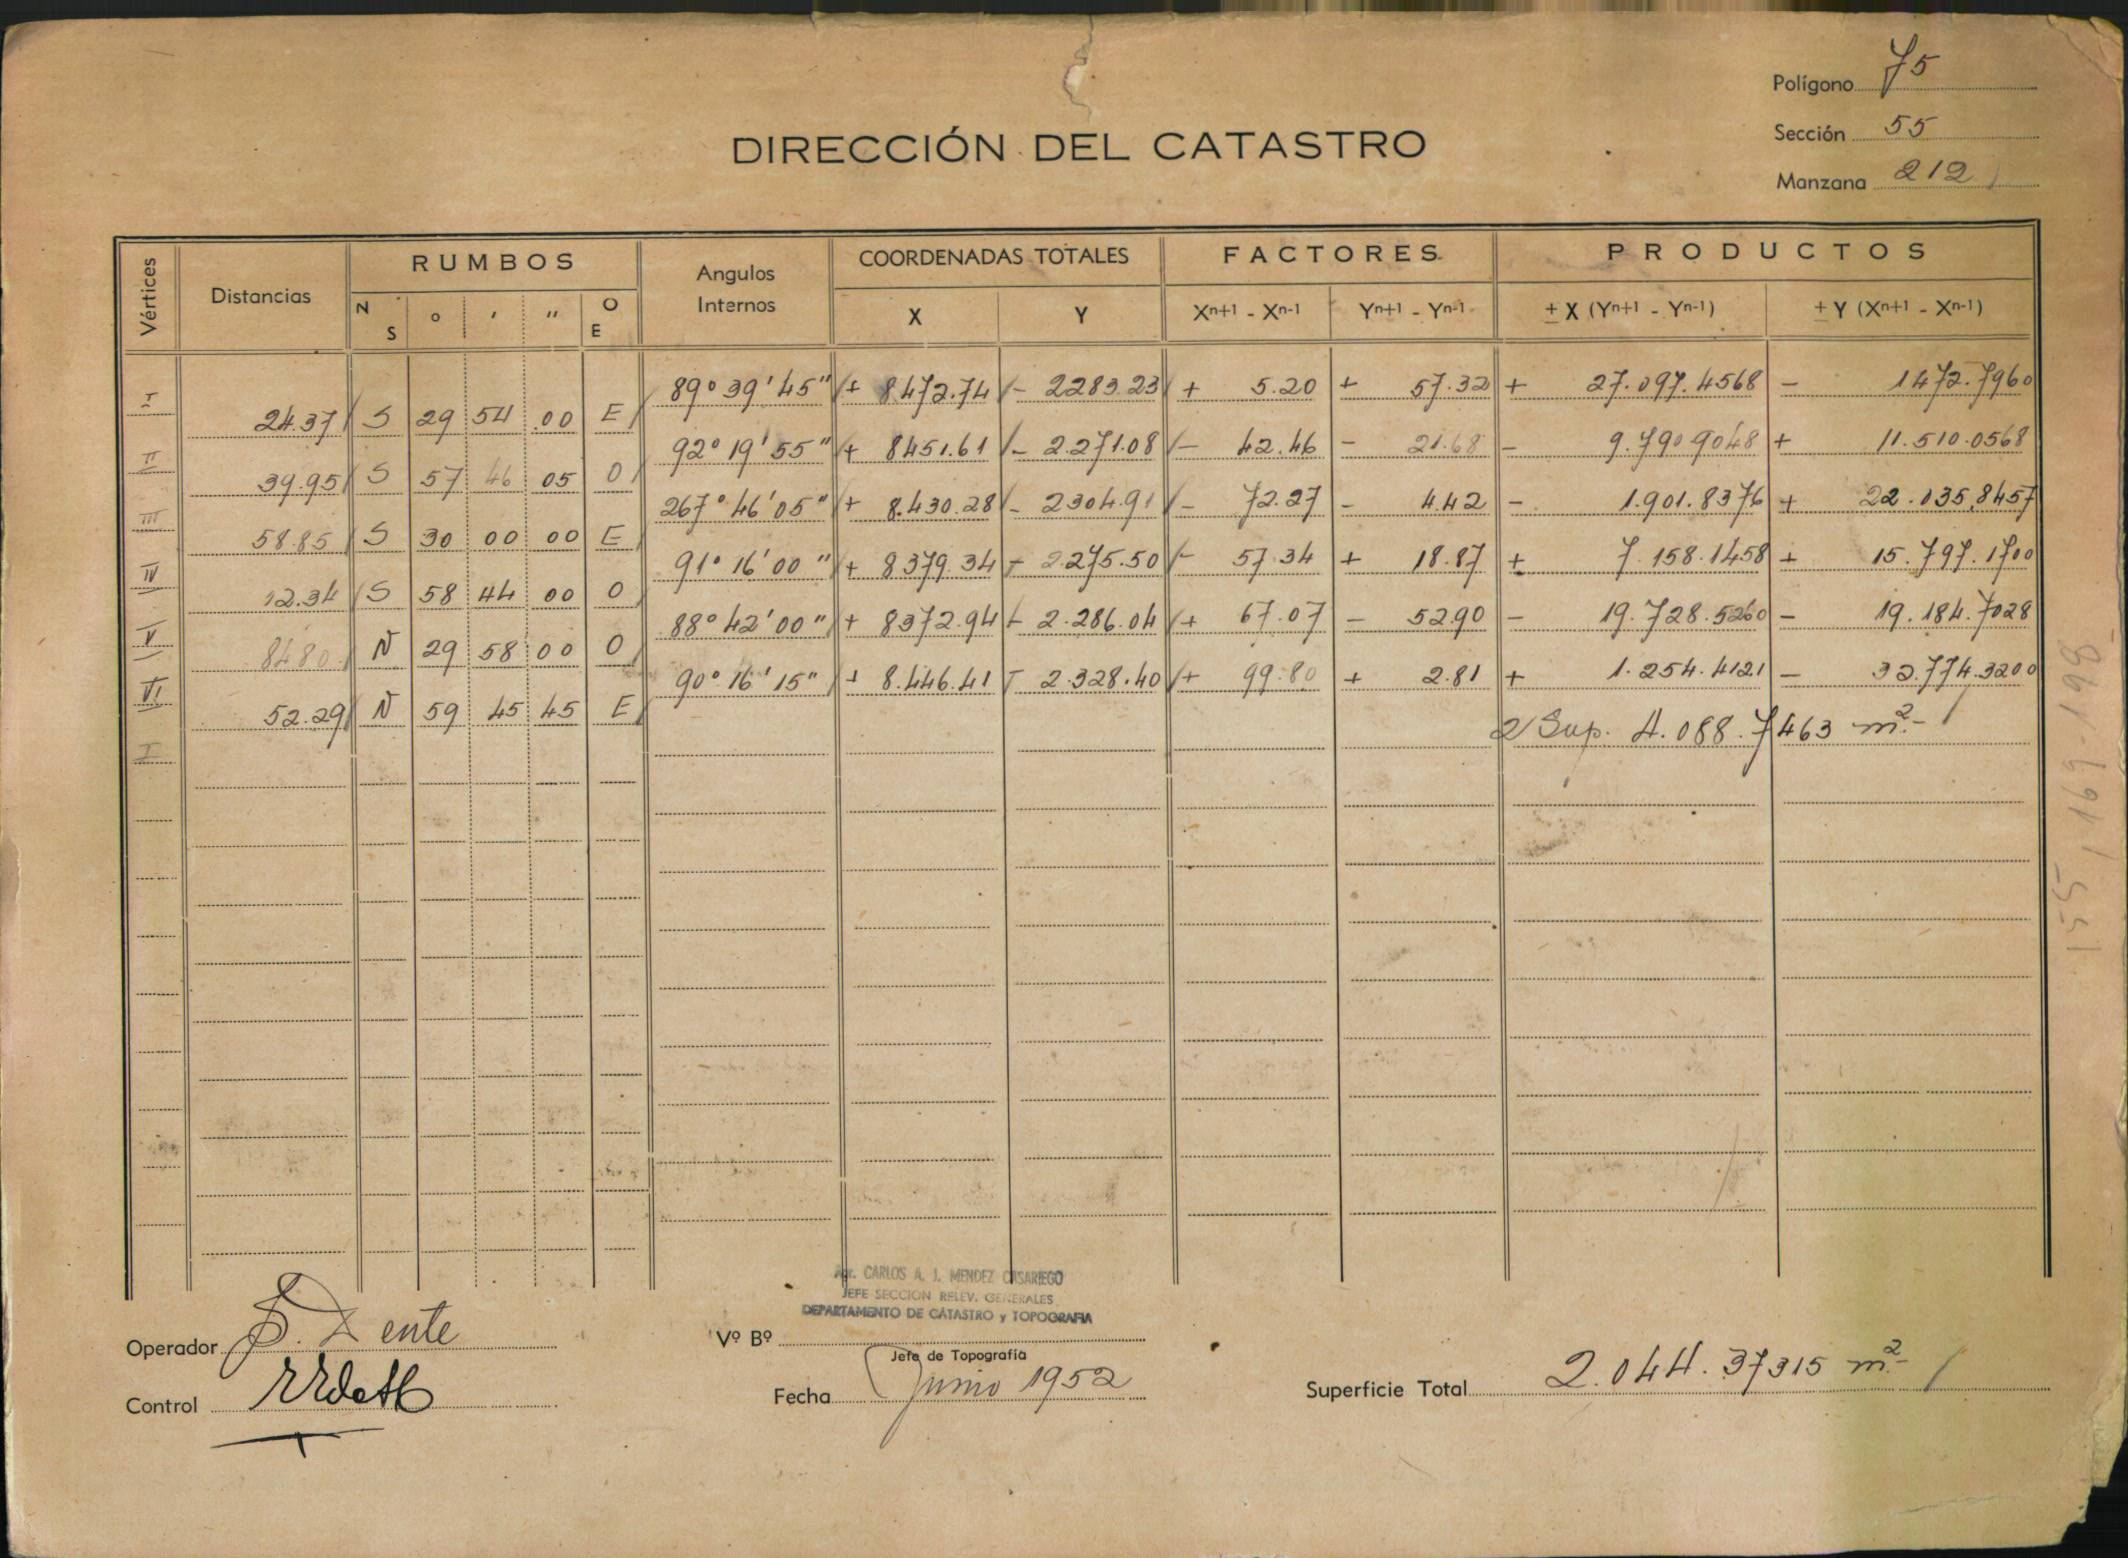 Polígono 75
Sección 55
Manzana 212
DIRECCIÓN DEL CATASTRO
Vértices Distancias RUMBOS Angulos Internos COORDENADAS TOTALES FACTORES PRODUCTOS
N S ° ' " O E X Y Xn+1 - Xn-1 Yn+1 - Yn-1 ± X (Yn+1 - Yn-1) ± Y (Xn+1 - Xn-1)
I 89° 39' 45" + 8472.74 - 2283.23 + 5.20 + 57.32 + 27.097.4568 - 1472.7960
24.37 S 29 54 00 E
II 92° 19' 55" + 8451.61 - 2.271.08 - 42.46 - 21.68 - 9.790.9048 + 11.510.0568
39.95 S 57 46 05 O
III 267° 46' 05" + 8.430.28 - 2304.91 - 72.27 - 4.42 - 1.901.8376 + 22.035.8457
58.85 S 30 00 00 E
IV 91° 16' 00" + 8379.34 - 2.275.50 - 57.34 + 18.87 + 7.158.1458 + 15.797.1700
12.34 S 58 44 00 O
V 88° 42' 00" + 8372.94 - 2.286.04 + 67.07 - 52.90 - 19.728.5260 - 19.184.7028
84.80 N 29 58 00 O
VI 90° 16' 15" + 8.446.41 - 2.328.40 + 99.80 + 2.81 + 1.254.4121 - 32.774.3200
52.29 N 59 45 45 E
2 Sup. 4.088.7463 m2
I
155 / 169-198
Agr. CARLOS A. I. MENDEZ CASARIEGO
JEFE SECCION RELEV. GENERALES
DEPARTAMENTO DE CATASTRO y TOPOGRAFIA
Operador
Vº Bº
Jefe de Topografía
Control
Fecha Junio 1952
Superficie Total 2.044.37315 m2